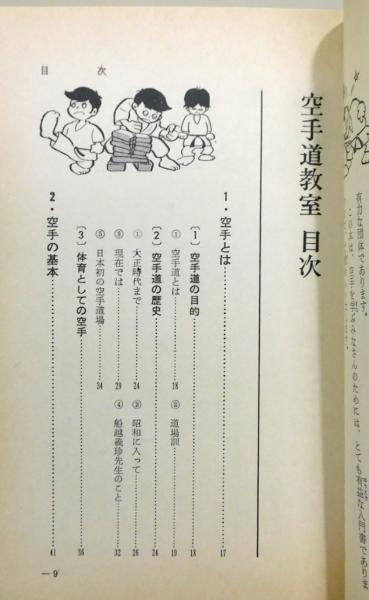 有力な団体であります。
この本は、空手を学ぶみなさんのためには、とても有益な入門書でありま
空手道教室 目次
目次
1・空手とは……17
〔1〕空手道の目的……18
① 空手道とは……18
② 道場訓……19
〔2〕空手道の歴史……24
① 大正時代まで……24
② 昭和に入って……26
③ 現在では……29
④ 船越義珍先生のこと……32
⑤ 日本初の空手道場……34
〔3〕体育としての空手……36
2・空手の基本……41
— 9